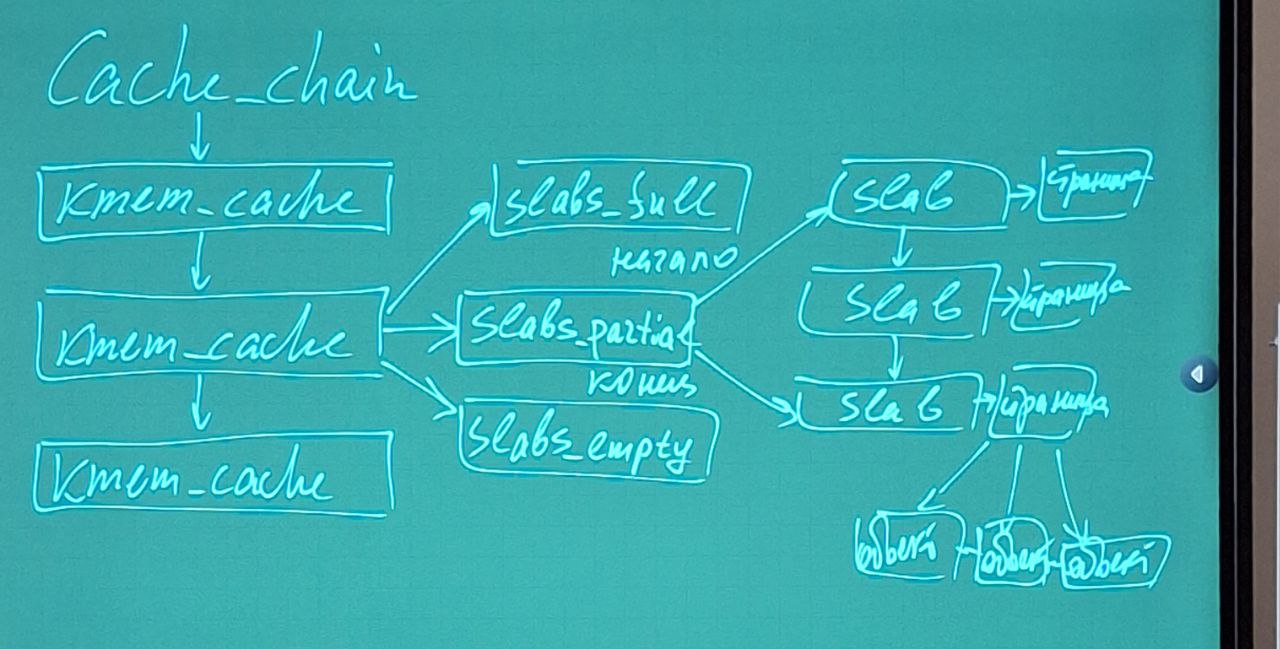 Cache_chain
kmem_cache
kmem_cache
kmem_cache
slabs_full
начало
slabs_partial
конец
slabs_empty
slab
страница
slab
страница
slab
страница
объект
объект
объект